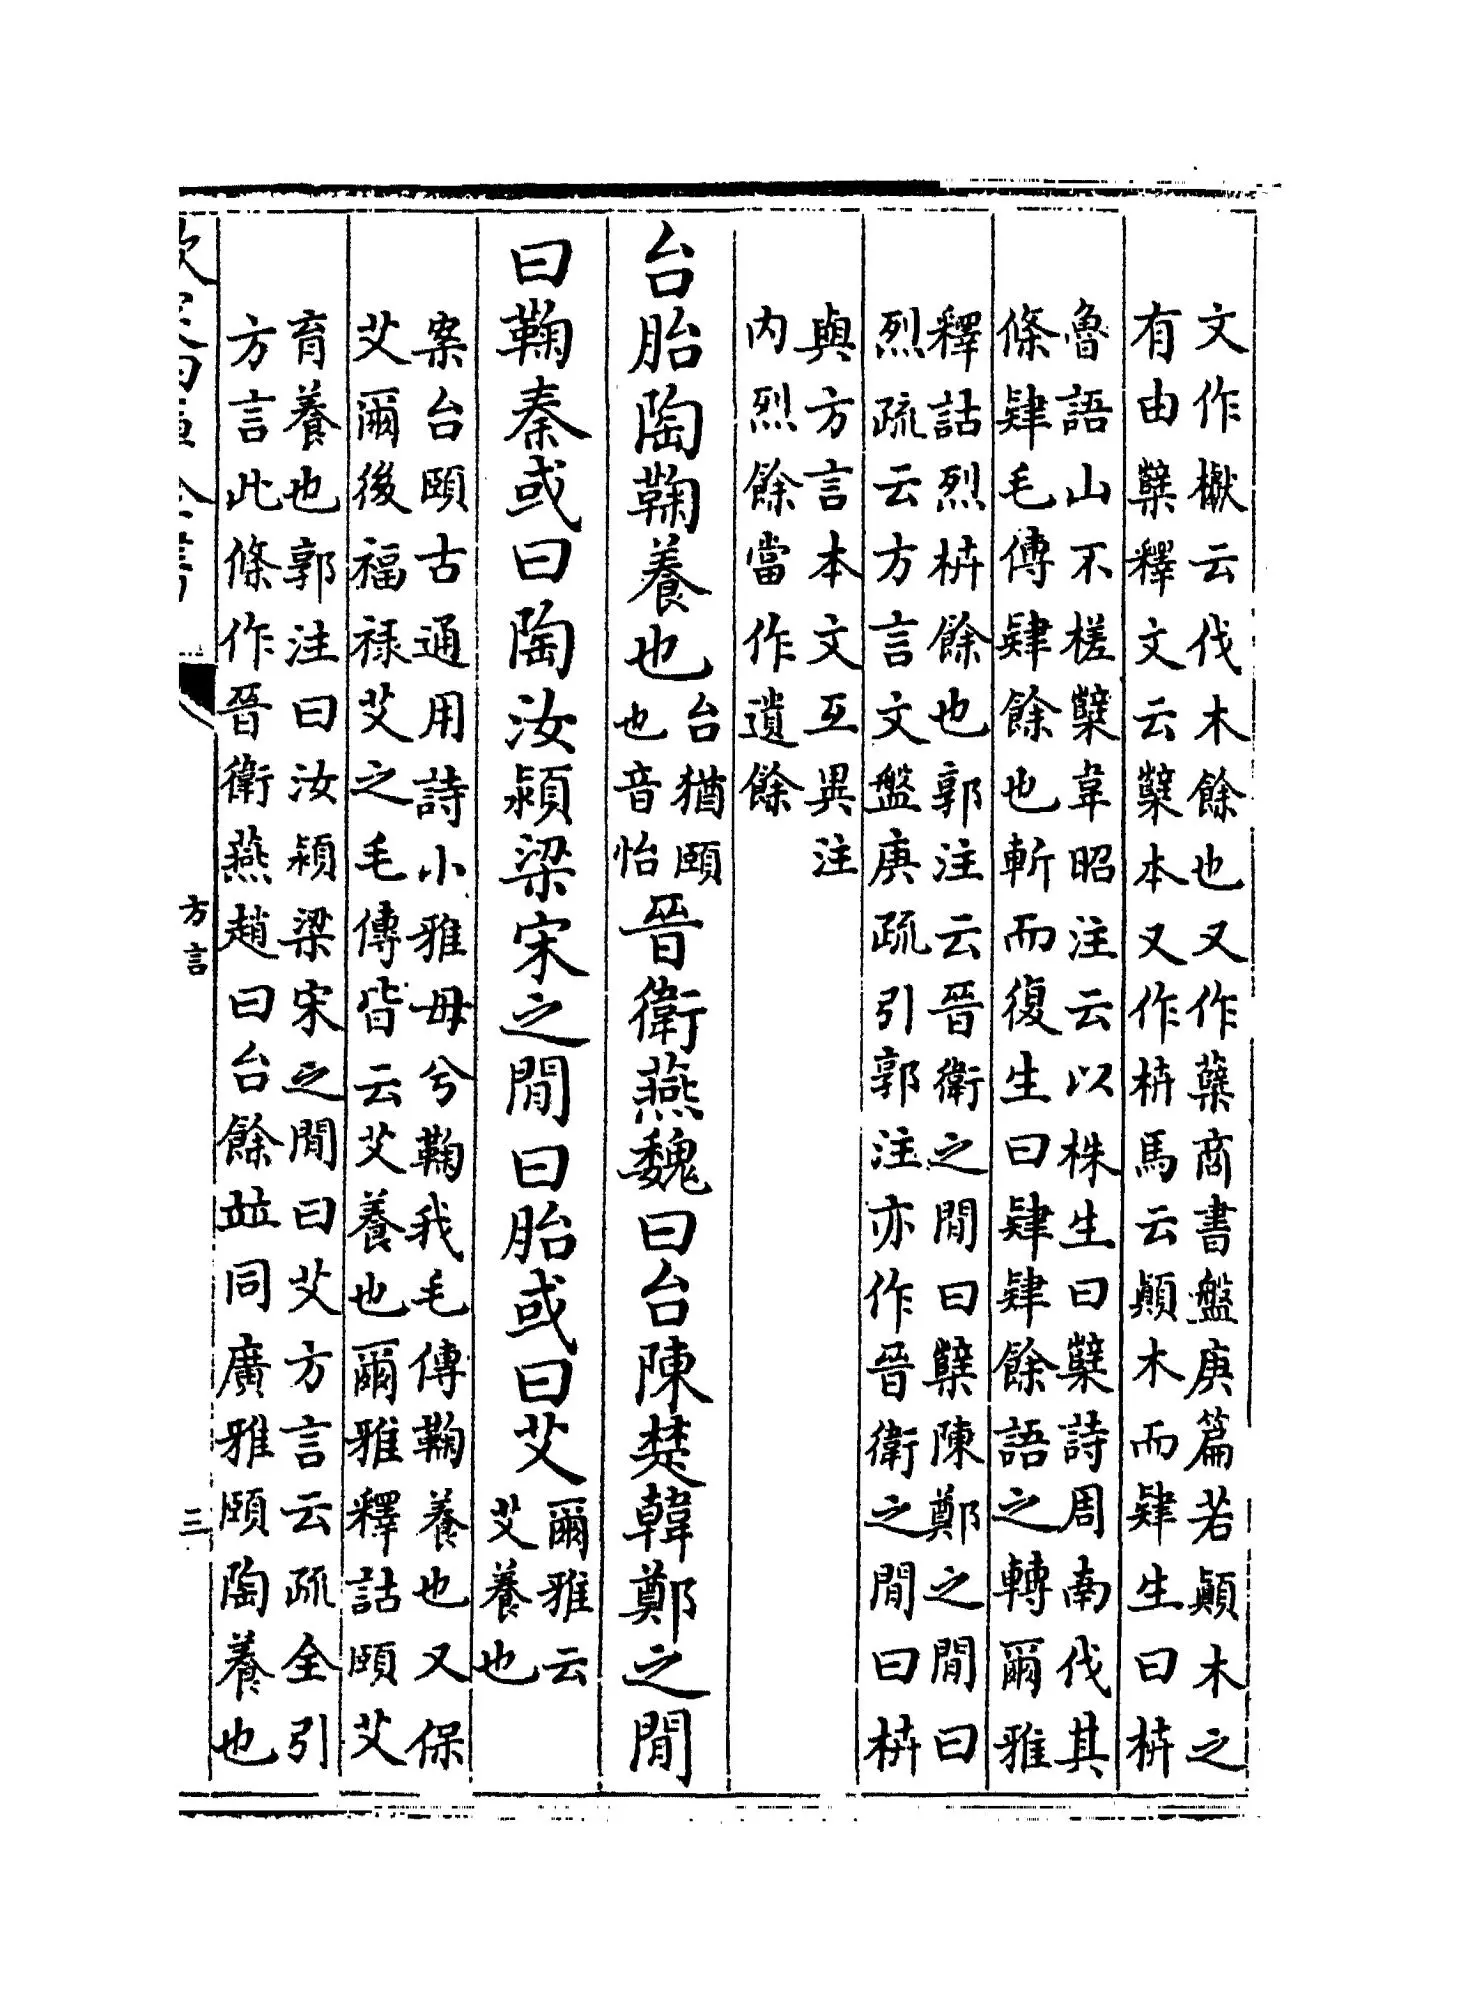 文作櫱云伐木餘也又作蘗商書盤庚篇若顛木之
有由櫱釋文云櫱本又作枿馬云顛木而肄生曰枿
魯語山不槎櫱韋昭注云以株生曰櫱詩周南伐其
條肄毛傳肄餘也斬而復生曰肄肄餘語之轉爾雅
釋詁烈枿餘也郭注云晉衛之閒曰櫱陳鄭之閒曰
烈疏云方言文盤庚疏引郭注亦作晉衛之閒曰枿
與方言本文互異注
内烈餘當作遺餘
台胎陶鞠養也
台猶頤
也音怡
晉衛燕魏曰台陳楚韓鄭之閒
曰鞠秦或曰陶汝潁梁宋之閒曰胎或曰艾
爾雅云
艾養也
案台頤古通用詩小雅母兮鞠我毛傳鞠養也又保
艾爾後福祿艾之毛傳皆云艾養也爾雅釋詁頤艾
育養也郭注曰汝潁梁宋之閒曰艾方言云疏全引
方言此條作晉衛燕趙曰台餘並同廣雅頤陶養也
方言
三